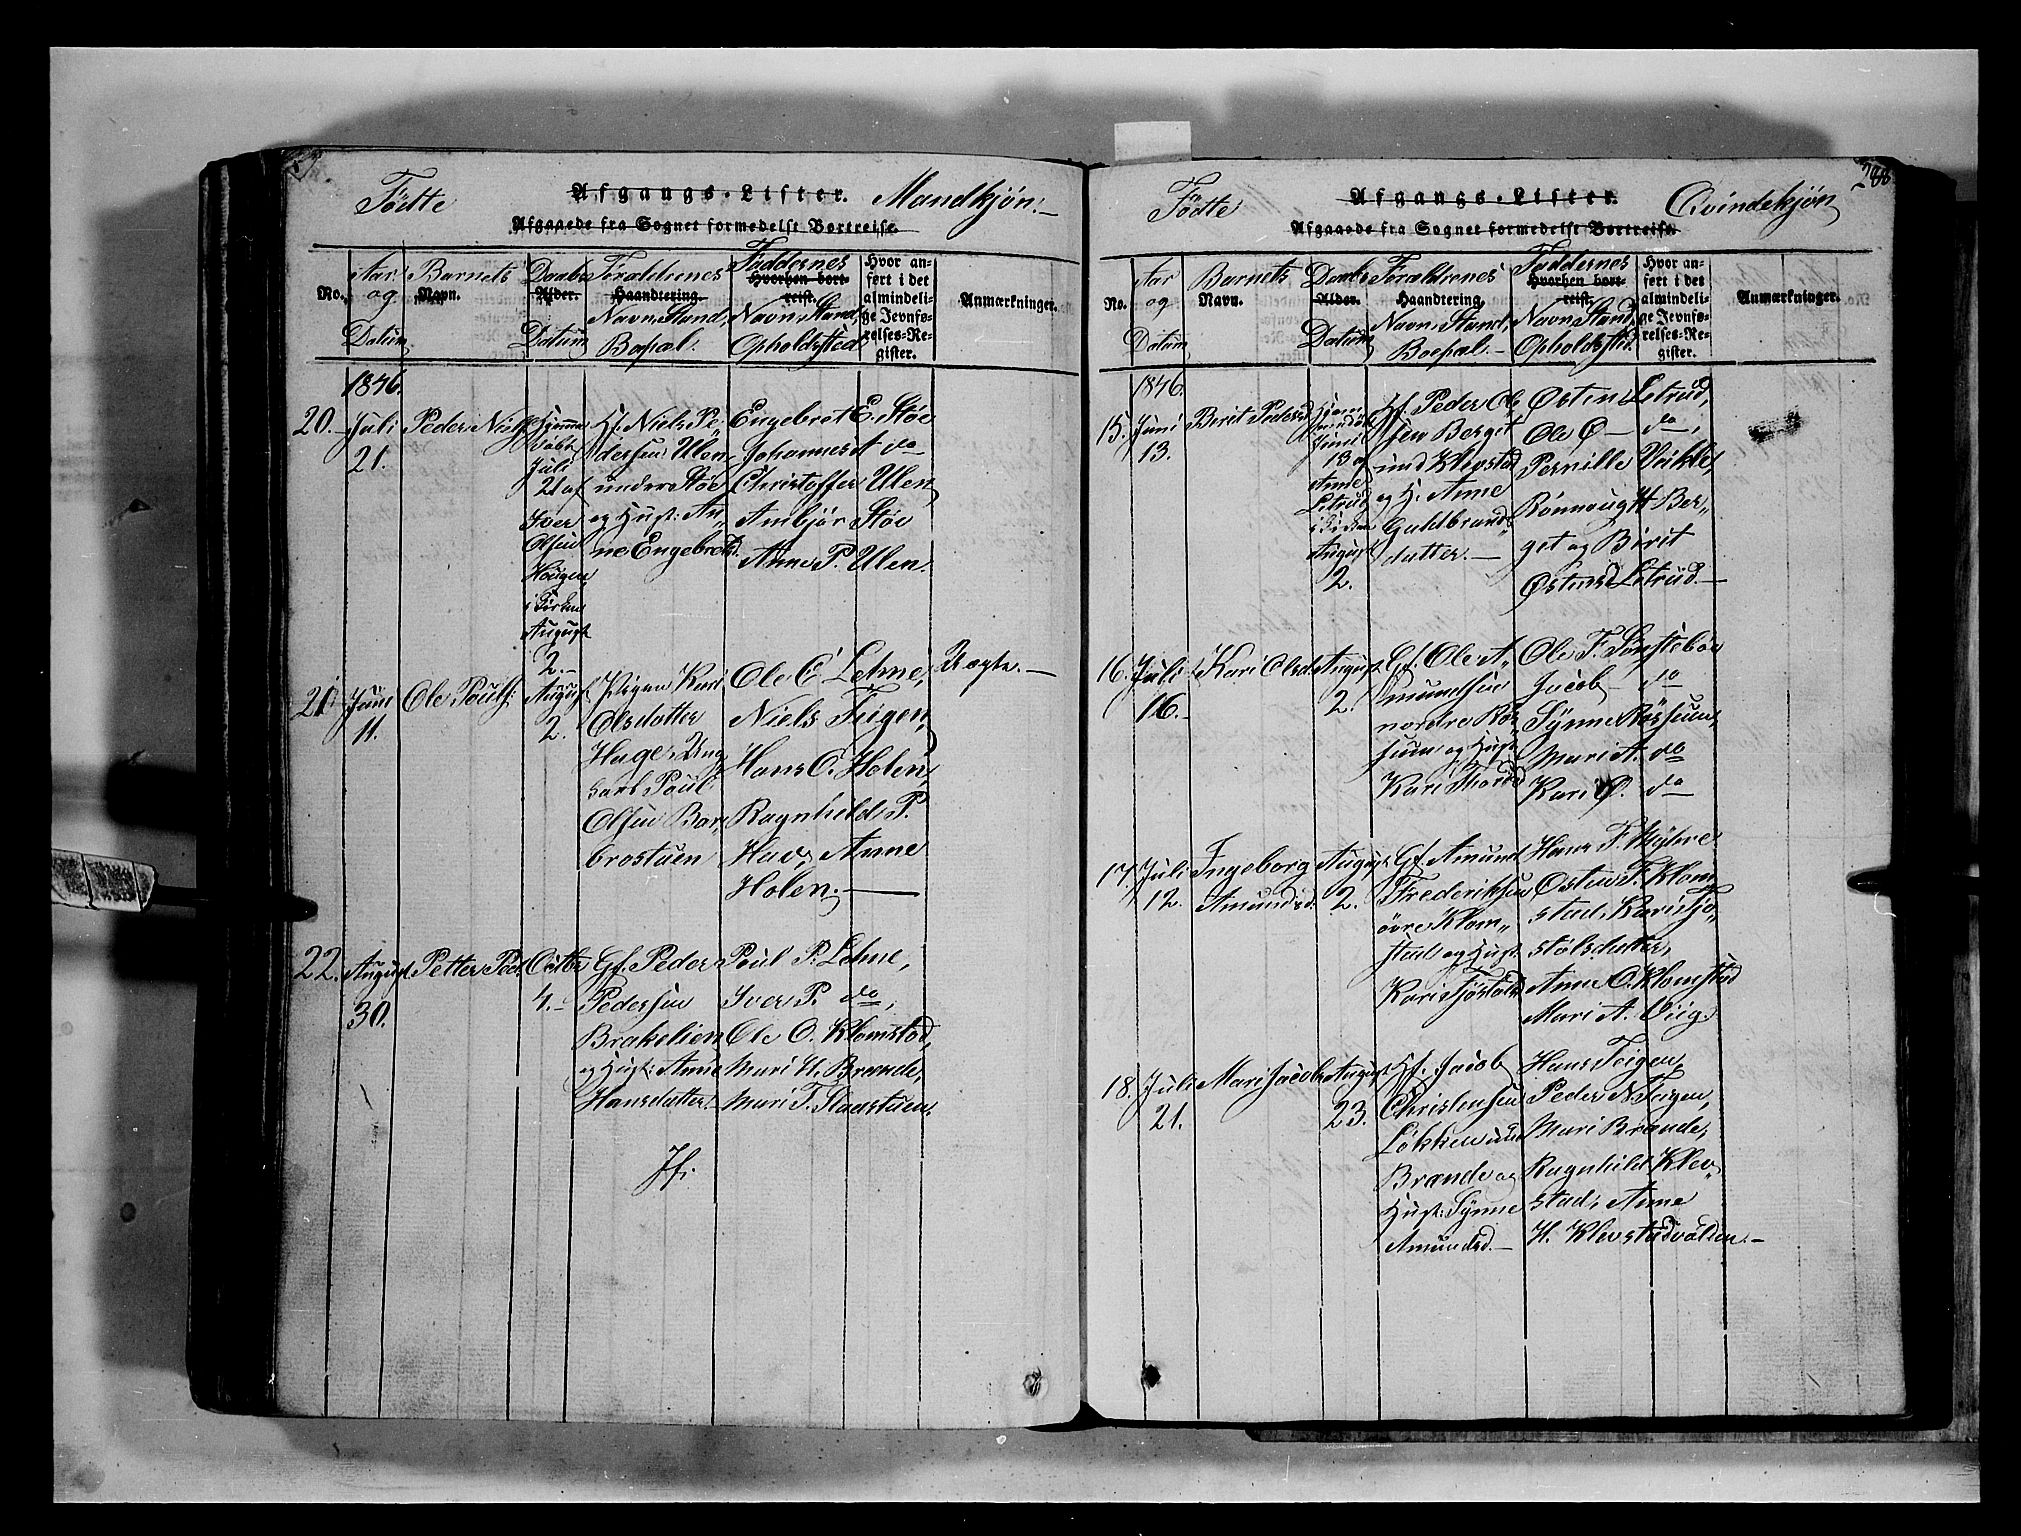 Födte
Afgangs-Lister.
Mandkjön.
Afgaaede fra Sognet formedelst Bortreise.
No.
Aar og Datum
Barnets Navn.
Daabs Alder. Datum
Foraldrenes Haandtering. Navn, Stand, Bopæl.
Faddernes Hvorhen bortreist. Navn, Stand, Opholdsted
Hvor anført i det almindelige Jevnførelses-Register.
Anmærkninger.
1846.
20. Juli 21.
Peder Niels
Hjemme
döbt
Juli
21 af
Iver
Olsen
Hougen,
i Kirken
August
2.
Gf. Niels Pe-
dersen Ulen
under Stöe
og Hust: An-
ne Engebretsd.
Engebret E. Stöe
Johannes A do
Christoffer Ulen
Ambjör Stöe
Anne P. Ulen.
21. Juni 11.
Ole Pouls:
August
2.
Pigen Kari
Olsdatter
Hage, Ung-
karl Poul
Olsen Bar-
brostuen
Ole E. Lehne,
Niels Teigen,
Hans O. Holen,
Ragnhild P.
Hav, Anne
Holen.
Uægte.
22. August 30.
Petter Ped.
Octbr
4.
Gf. Peder
Pedersen
Brakelien
og Hust: Anne
Hansdatter.
Poul P. Lehne,
Iver P. do,
Ole O. Klomstad,
Mari H. Brande,
Mari T. Staustuen.
288
Födte
Afgangs-Lister.
Qvindekjön
Afgaaede fra Sognet formedelst Bortreise.
No.
Aar og Datum
Barnets Navn.
Daabs Alder. Datum
Foraldrenes Haandtering. Navn, Stand, Boepæl.
Faddernes Hvorhen bortreist. Navn, Stand, Opholdsted.
Hvor anført i det almindelige Jevnførelses-Register.
Anmærkninger.
1846.
15. Juni 13.
Berit Pedersd
Juni
13 af
Anne
Letrud
i Kirken
August
2.
Hf. Peder Ol-
sen Berget
und Klevstad
og H. Anne
Guldbrands-
datter.
Östen Letrud,
Ole Ö do,
Pernille Vikle,
Rönnoug H Ber-
get og Berit
Östensd Letrud.
16. Juli 16.
Kari Olsd
August
2.
Gf. Ole A-
mundsen
nordre Ros-
sum og Hust
Kari Thordsd
Ole F. Sönsteböe
Jacob do
Synne Rössum,
Mari A. do
Kari Ö. do
17. Juli 12.
Ingeborg
Amundsd.
August
2.
Gf. Amund
Frederiksen
övre Klom-
stad og Hust
Kari Tjöstolsd
Hans F. Myhre
Östen F. Klom-
stad, Kari Tjö-
stölsdatter,
Anne O. Klomstad
Mari A. Viig.
18. Juli 21.
Mari Jacobs
August
23.
Hf. Jacob
Christensen
Lökken und
Brande og
Hust: Synne
Amundsd.
Hans Teigen,
Peder N Teigen,
Mari Brande,
Ragnhild Klev-
stad, Anne
H. Klevstadvolden.